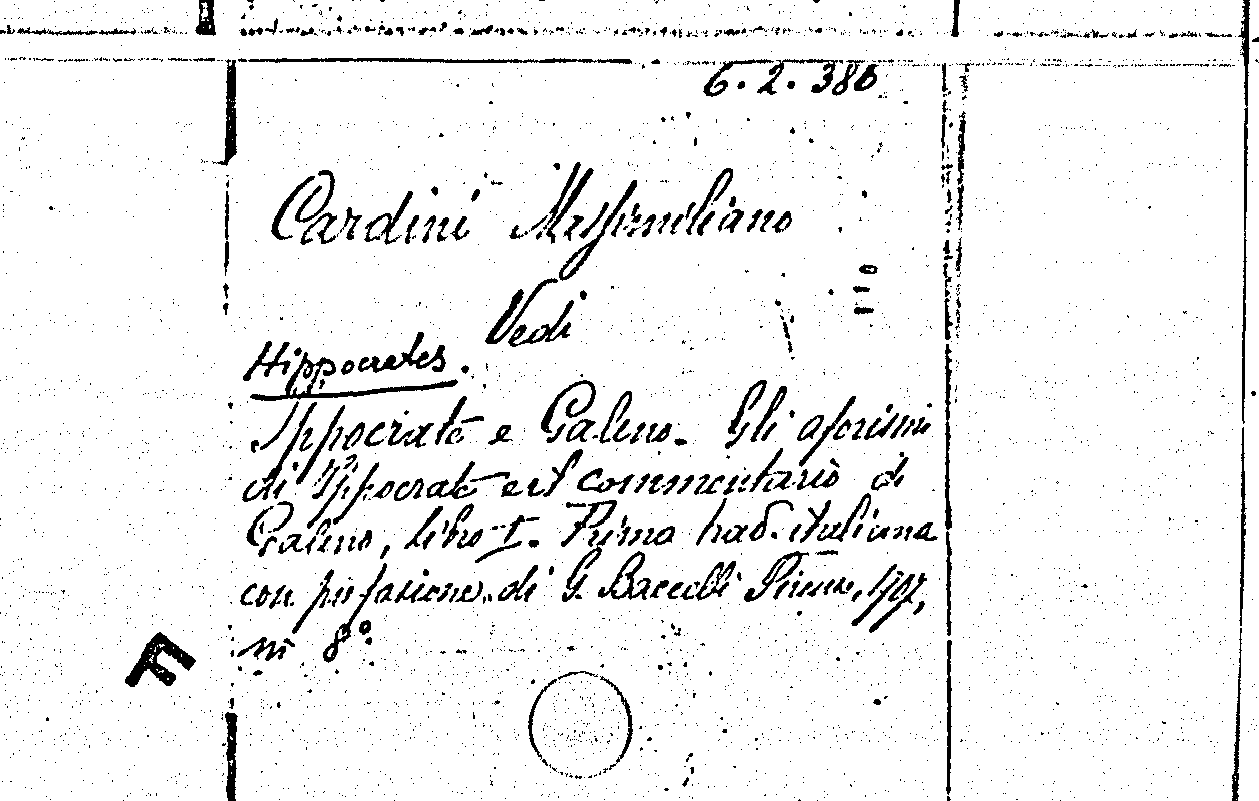 6.2.380
Cardini Massimiliano
Vedi
Hippocrates.
Ippocrate e Galeno. Gli aforismi
di Ippocrate e il commentario di
Galeno, libro I. Prima trad. italiana
con prefazione di G. Baccelli Firenze, 1907,
in 8°
F